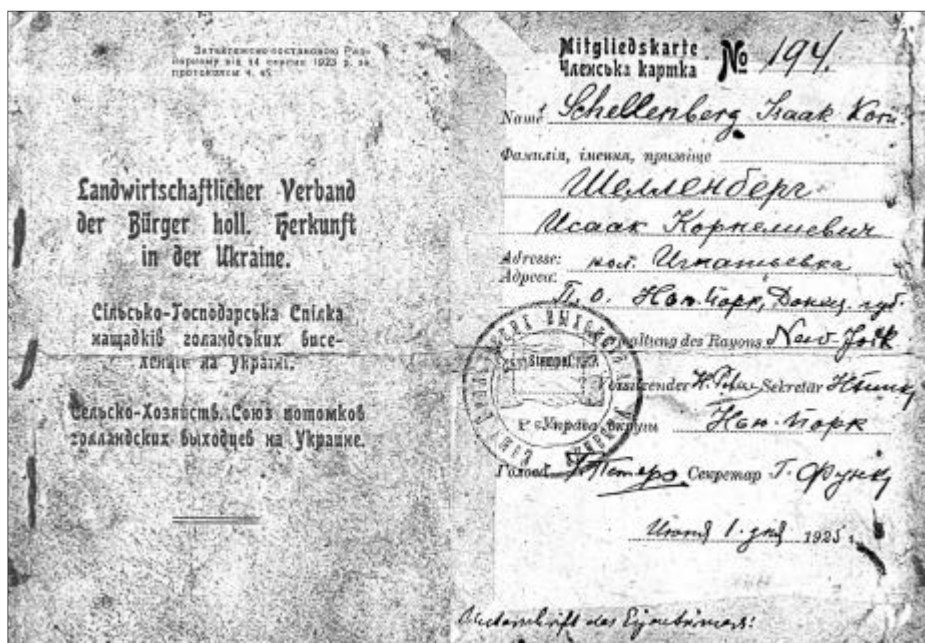 Landwirtschaftlicher Verband
der Bürger holl. Herkunft
in der Ukraine.
Сільсько-Господарська Спілка
нащадків голандських висе-
ленців на україні.
Сельско-Хозяйств. Союз потомков
голландских выходцев на Украине.
Mitgliedskarte
Членська картка
№ 194.
Name Schellenberg Isaak Korn.
Фамилія, імення, призвіще
Шелленберг
Исаак Корнелиевич
Adresse: кол. Игнатьевка
Адреса:
П.О. Нью-Йорк, Донец. губ.
Verwaltung des Rayons New-York
Stempel
Vorsitzender Sekretär
Управа округи Нью-Йорк
Голова Петерс Секретар Г. Функ
Июня 1. дня 1925 г.
Unterschrift des Eigentümers: